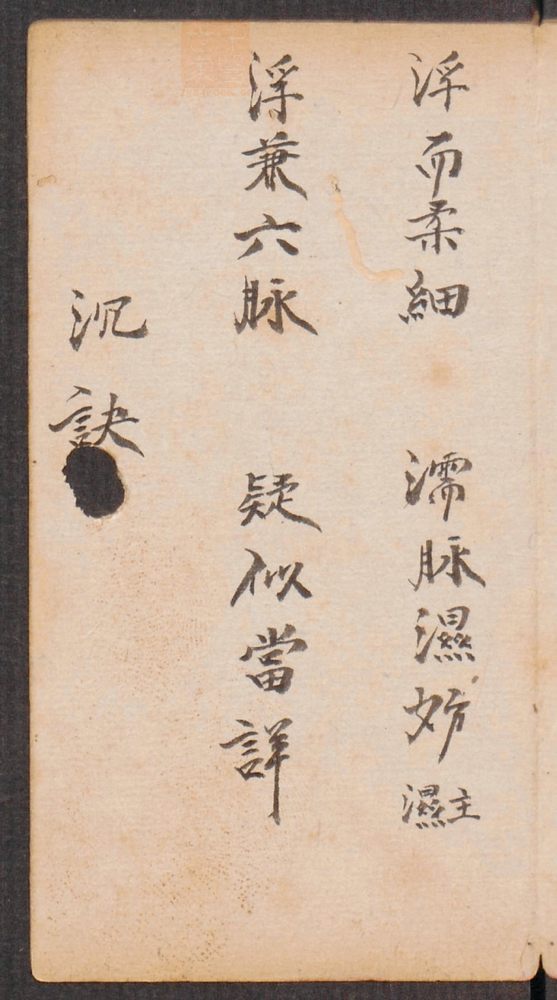 浮而柔細　濡脉濕妨 主濕
浮兼六脉　疑似當詳
沉訣